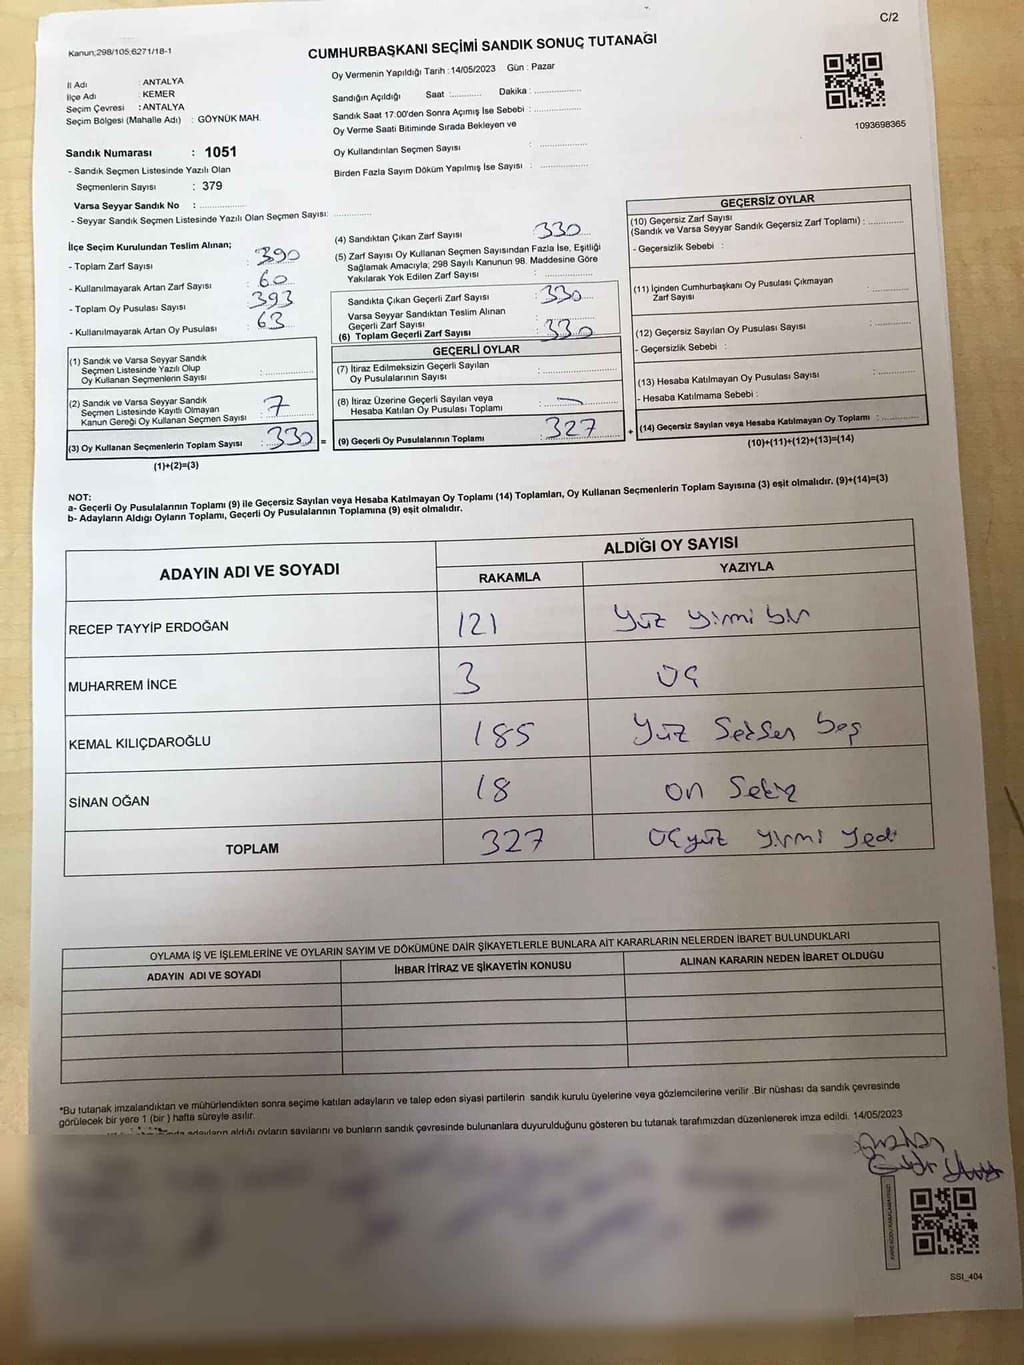 C/2
Kanun;298/105;6271/18-1
CUMHURBAŞKANI SEÇİMİ SANDIK SONUÇ TUTANAĞI
İl Adı : ANTALYA
İlçe Adı : KEMER
Seçim Çevresi : ANTALYA
Seçim Bölgesi (Mahalle Adı) : GÖYNÜK MAH.
Oy Vermenin Yapıldığı Tarih : 14/05/2023 Gün : Pazar
Sandığın Açıldığı Saat :........... Dakika : ................
Sandık Saat 17:00'den Sonra Açımış İse Sebebi : ................
Oy Verme Saati Bitiminde Sırada Bekleyen ve
Oy Kullandırılan Seçmen Sayısı : ................
Birden Fazla Sayım Döküm Yapılmış İse Sayısı : ................
1093698365
Sandık Numarası : 1051
- Sandık Seçmen Listesinde Yazılı Olan
Seçmenlerin Sayısı : 379
Varsa Seyyar Sandık No : ................
- Seyyar Sandık Seçmen Listesinde Yazılı Olan Seçmen Sayısı: ................
İlçe Seçim Kurulundan Teslim Alınan;
- Toplam Zarf Sayısı : 390
- Kullanılmayarak Artan Zarf Sayısı : 60
- Toplam Oy Pusulası Sayısı : 393
- Kullanılmayarak Artan Oy Pusulası : 63
(1) Sandık ve Varsa Seyyar Sandık
Seçmen Listesinde Yazılı Olup
Oy Kullanan Seçmenlerin Sayısı : ................
(2) Sandık ve Varsa Seyyar Sandık
Seçmen Listesinde Kayıtlı Olmayan
Kanun Gereği Oy Kullanan Seçmen Sayısı : 7
(3) Oy Kullanan Seçmenlerin Toplam Sayısı : 330 =
(1)+(2)=(3)
(4) Sandıktan Çıkan Zarf Sayısı : 330
(5) Zarf Sayısı Oy Kullanan Seçmen Sayısından Fazla İse, Eşitliği
Sağlamak Amacıyla; 298 Sayılı Kanunun 98. Maddesine Göre
Yakılarak Yok Edilen Zarf Sayısı : ................
Sandıkta Çıkan Geçerli Zarf Sayısı : 330
Varsa Seyyar Sandıktan Teslim Alınan
Geçerli Zarf Sayısı : ................
(6) Toplam Geçerli Zarf Sayısı : 330
GEÇERLİ OYLAR
(7) İtiraz Edilmeksizin Geçerli Sayılan
Oy Pusulalarının Sayısı : ................
(8) İtiraz Üzerine Geçerli Sayılan veya
Hesaba Katılan Oy Pusulası Toplamı : —
(9) Geçerli Oy Pusulalarının Toplamı : 327 +
GEÇERSİZ OYLAR
(10) Geçersiz Zarf Sayısı
(Sandık ve Varsa Seyyar Sandık Geçersiz Zarf Toplamı) : ............
- Geçersizlik Sebebi :
(11) İçinden Cumhurbaşkanı Oy Pusulası Çıkmayan
Zarf Sayısı : ............
(12) Geçersiz Sayılan Oy Pusulası Sayısı : ............
- Geçersizlik Sebebi :
(13) Hesaba Katılmayan Oy Pusulası Sayısı : ............
- Hesaba Katılmama Sebebi :
(14) Geçersiz Sayılan veya Hesaba Katılmayan Oy Toplamı : ............
(10)+(11)+(12)+(13)=(14)
NOT:
a- Geçerli Oy Pusulalarının Toplamı (9) ile Geçersiz Sayılan veya Hesaba Katılmayan Oy Toplamı (14) Toplamları, Oy Kullanan Seçmenlerin Toplam Sayısına (3) eşit olmalıdır. (9)+(14)=(3)
b- Adayların Aldığı Oyların Toplamı, Geçerli Oy Pusulalarının Toplamına (9) eşit olmalıdır.
ADAYIN ADI VE SOYADI ALDIĞI OY SAYISI
RAKAMLA YAZIYLA
RECEP TAYYİP ERDOĞAN 121 Yüz yirmi bir
MUHARREM İNCE 3 üç
KEMAL KILIÇDAROĞLU 185 Yüz Seksen beş
SİNAN OĞAN 18 on Sekiz
TOPLAM 327 üçyüz yirmi yedi
OYLAMA İŞ VE İŞLEMLERİNE VE OYLARIN SAYIM VE DÖKÜMÜNE DAİR ŞİKAYETLERLE BUNLARA AİT KARARLARIN NELERDEN İBARET BULUNDUKLARI
ADAYIN ADI VE SOYADI İHBAR İTİRAZ VE ŞİKAYETİN KONUSU ALINAN KARARIN NEDEN İBARET OLDUĞU
*Bu tutanak imzalandıktan ve mühürlendikten sonra seçime katılan adayların ve talep eden siyasi partilerin sandık kurulu üyelerine veya gözlemcilerine verilir .Bir nüshası da sandık çevresinde
görülecek bir yere 1 (bir ) hafta süreyle asılır.
adayların aldığı oyların sayılarını ve bunların sandık çevresinde bulunanlara duyurulduğunu gösteren bu tutanak tarafımızdan düzenlenerek imza edildi. 14/05/2023
SSI_404